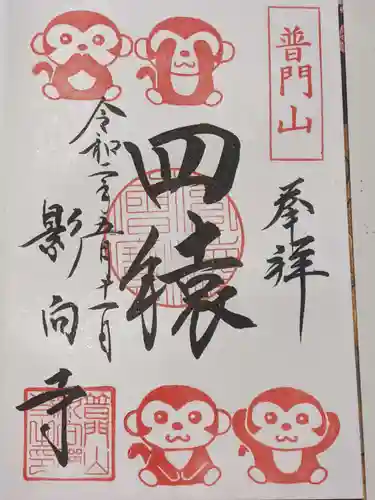 普門山
奉拝
四猿
令和元年五月十一日
影向寺
普門山